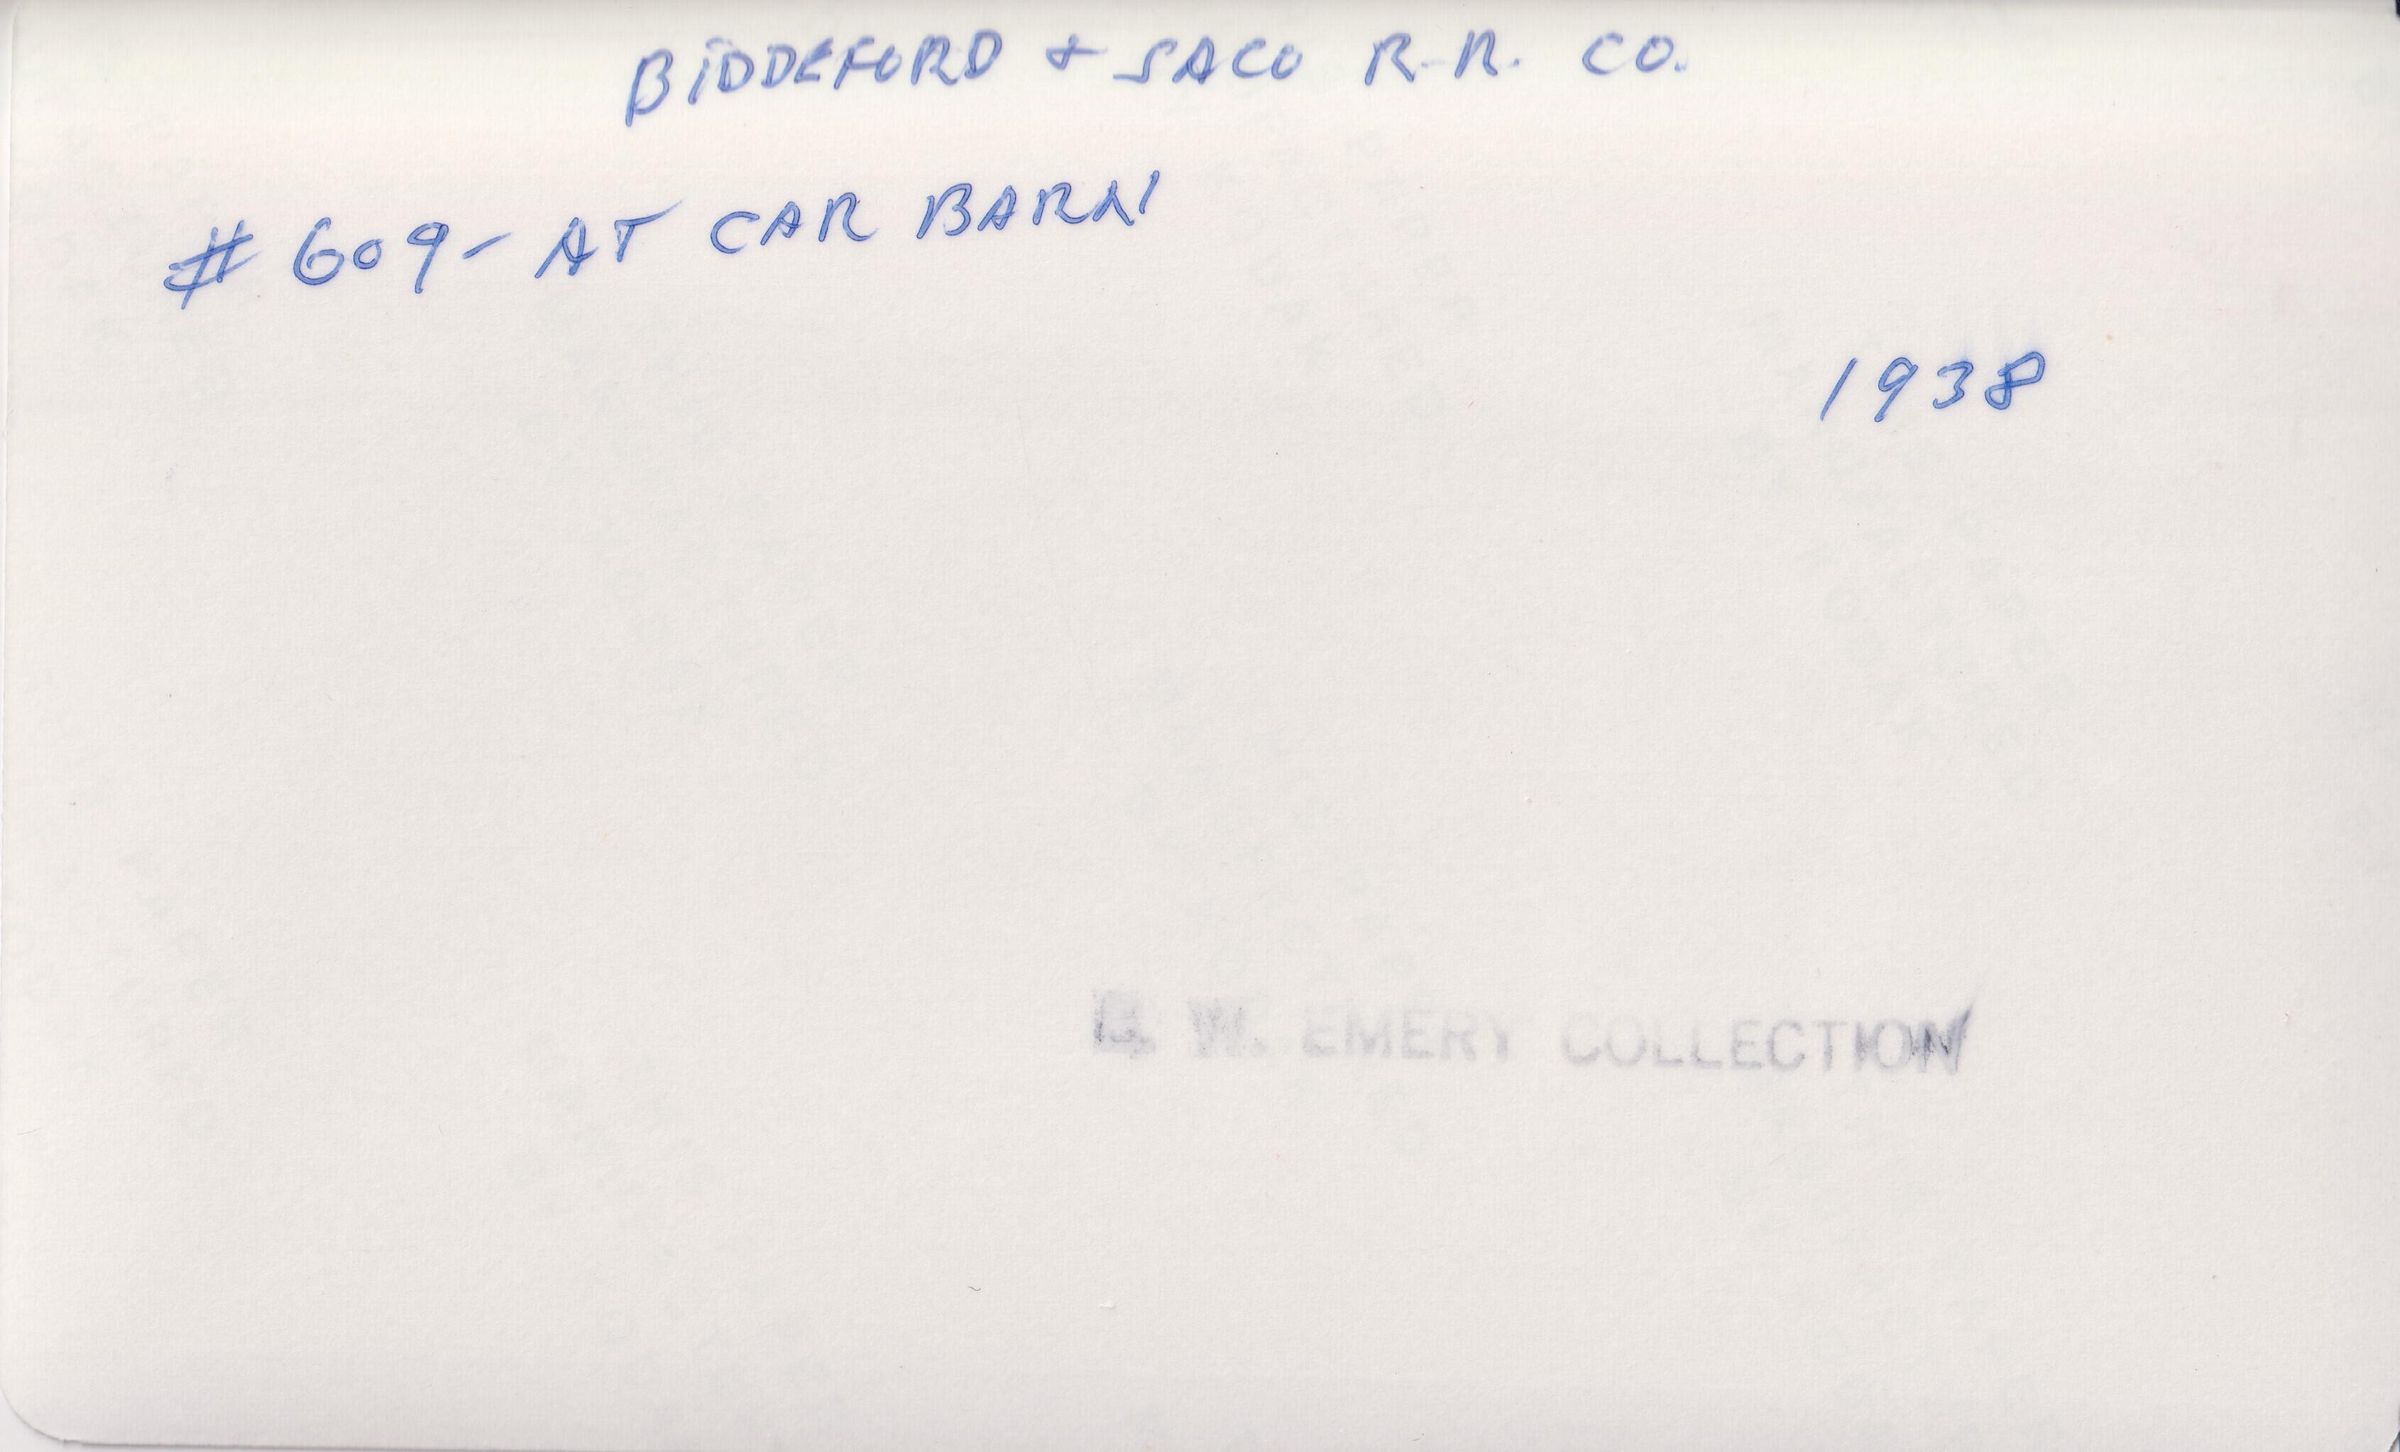 BIDDEFORD & SACO R.R. CO.
# 609 - AT CAR BARN
1938
W. EMERY COLLECTION